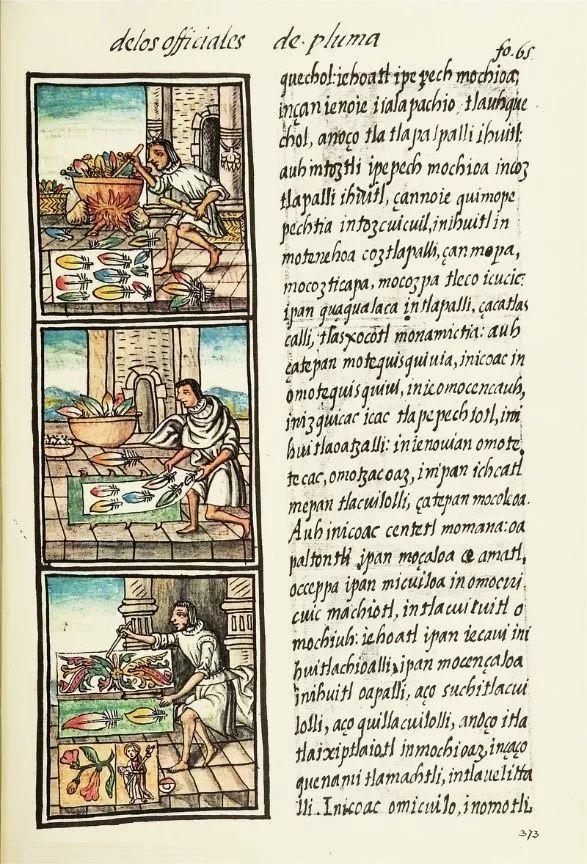 delos officiales de pluma
fo. 65
quechol: iehoatl ipepech mochioa,
inçan ienoie isalapachio, tlauhque
chol, anoço tla tlapalpalli ihuitl:
auh mtoztli ipepech mochioa incoz
tlapalli ihuitl, çannoie quimope
pechtia intozcuicuil, inihuitl in
motenehoa coztlapalli, çan mopa,
mocozticapa, mocozpa tleco icucic:
ipan quaqualaca intlapalli, çacatlas
calli, tlasxocotl monamictia: auh
çatepan motequisquiuia, inicoac in
omotequisquiui, inicomocencauh,
inizquicac icac tlapepechiotl, ini
huitlaoatzalli: inienouian omote
tecac, omotzacoaz, impan ichcatl
mepan tlacuilolli, çatepan mocoleoa.
Auh inicoac centetl momana: oa
paltontli ipan moçaloa amatl,
occeppa ipan micuiloa inomocui
cuic machiotl, intlacuituitl o
mochiuh: iehoatl ipan iecaui ini
huitlachioalli, ipan mocencaloa
inihuitl oapalli, aço suchitlacui
lolli, aço quillacuilolli, anoço itla
tlaixiptlaiotl inmochioaz, inçaço
quenami tlamachtli, intlauelitta
lli. Inicoac omicuilo, inomotli
373